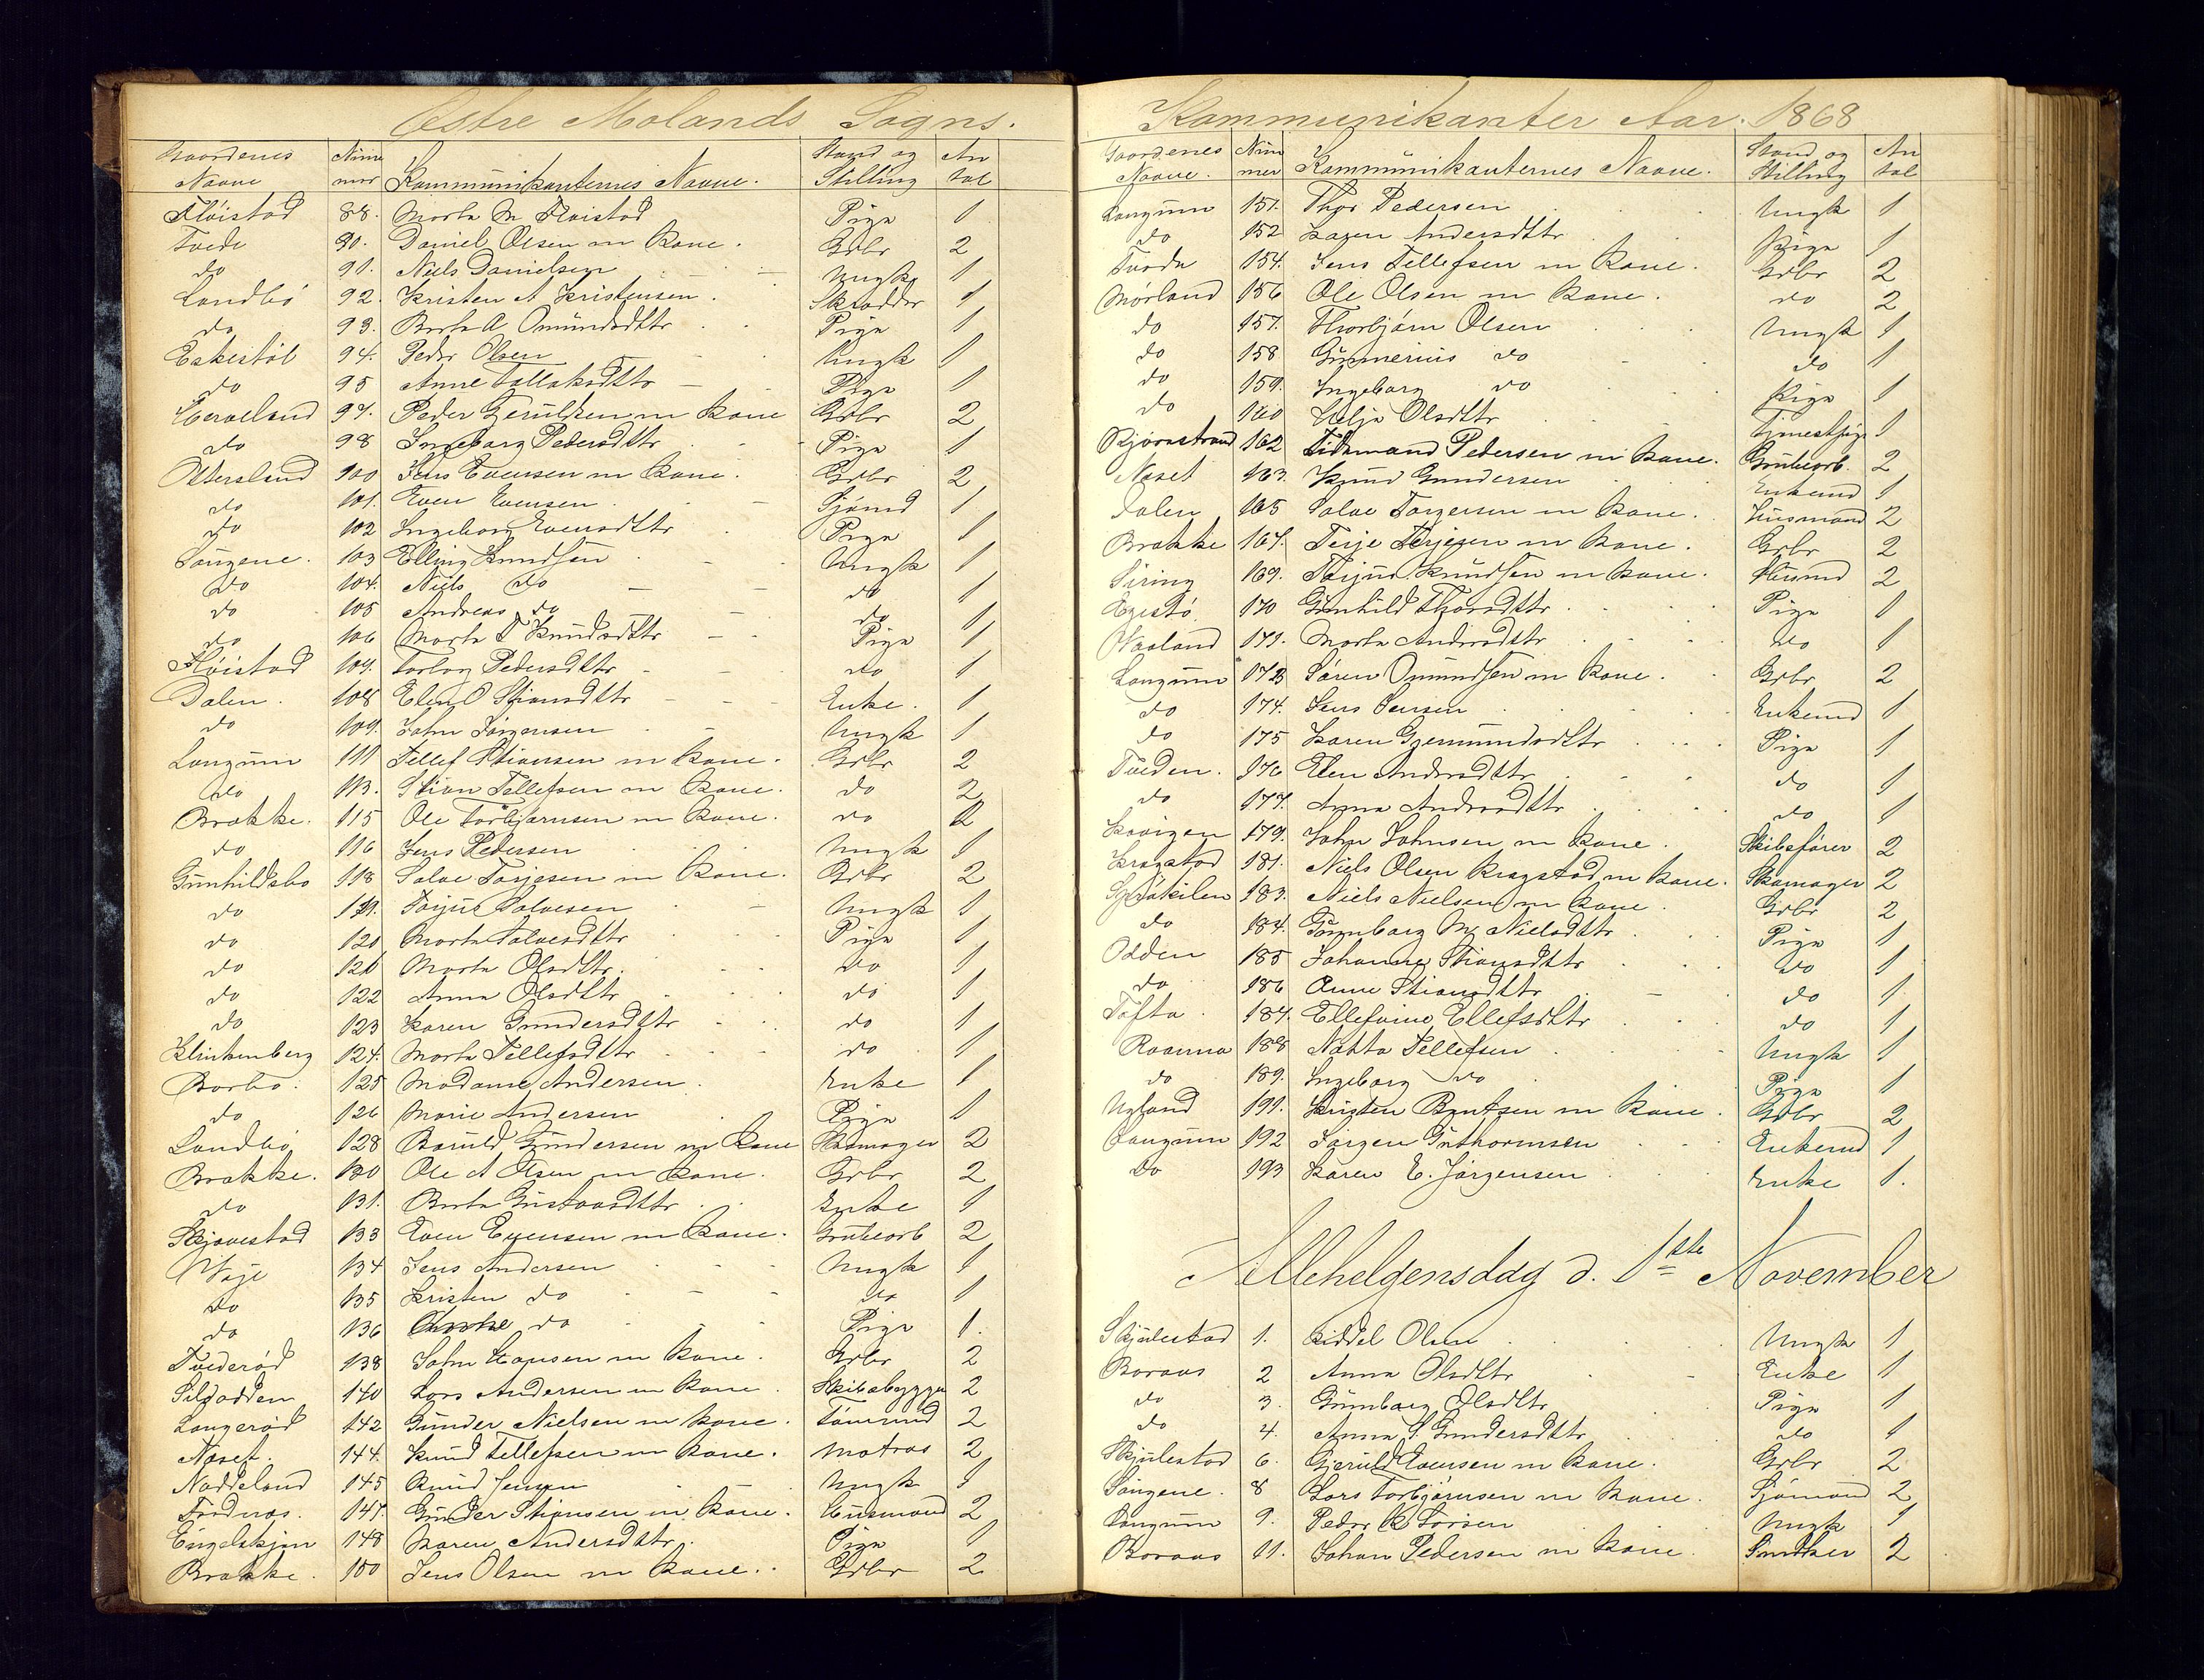 Østre Molands Sogns.
Gaardenes Navne Num mer Kommunikanternes Navne. Stand og Stilling An tal
Fløistad 88. Marte M Fløistad Pige 1
Tvede 90. Daniel Olsen m Kone. Grbr 2
do 91. Niels Danielsen Ungk 1
Landbö 92. Kristen A Kristensen. Skrædder 1
do 93. Berte A Omundsdttr Pige 1
Eskestøl 94. Peder Olsen Ungk 1
do 95 Anne Tallaksdttr Pige 1
Herveland 97. Peder Gjeruldsen m Kone Grbr 2
do 98 Ingeborg Pedersdttr Pige 1
Ottersland 100 Jens Evensen m Kone. Grbr 2
do 101. Even Evensen Sjömd 1
do 102 Ingeborg Evensdttr Pige 1
Songene. 103 Elling Knudsen Ungk 1
do 104. Niels do do 1
do 105 Andreas do do 1
do 106 Marte T Knudsdttr Pige 1
Fløistad 107. Torlog Pedersdttr do 1
Dalen. 108 Elen O Stiansdttr Enke. 1
do 109. John Jörgensen Ungk 1
Langum 111 Tellef Stiansen m Kone. Grbr 2
do 113. Stian Tellefsen m Kone. do 2
Brække. 115 Ole Torbjørnsen m Kone. do 2
do 116 Jens Pedersen Ungk 1
Gunhildsbo 118 Salve Torjesen m Kone. Grbr 2
do 119. Torjus Salvesen Ungk 1
do 120 Marte Salvesdttr Pige 1
do 121 Marte Olsdttr. do 1
do 122 Anna Olsdttr do 1
do 123 Karen Gundersdttr do 1
Klinkenberg 124. Marte Tellefsdttr do 1
Borbo. 125 Madame Andersen. Enke 1
do 126 Marie Andersen Pige 1
Landbö 128 Baruld Gundersen m Kone Skomager 2
Brække. 130 Ole A Olsen m Kone. Grbr 2
do 131. Berte Gustavsdttr Enke 1
Skjævestad 133 Even Evensen m Kone. Grubearb 2
Weje 134 Jens Andersen Ungk 1
do 135 Kristen do do 1
do 136 do Pige 1.
Tvederød 138 John Hansen m Kone. Grbr 2
Sildodden 140 Lars Andersen m Kone Skibsbygger 2
Langerød 142 Gunder Nielsen m Kone. Tömmd 2
Næset. 144. Knud Tellefsen m Kone. Matros 2
Naddeland 145 Knud Jensen Ungk 1
Frednæs. 147. Gunder Stiansen m Kone. Husmand 2
Engelskjön 148 Karen Andersdttr. Pige 1
Brække. 150 Jens Olsen m Kone. Grbr 2
Kommunikanter Aar. 1868
Gaardenes Navne. Num mer Kommunikanternes Navne. Stand og Stilling An tal
Langum 151. Thor Pedersen Ungk 1
do 152 Karen Andersdttr Pige 1
Tvede 154. Jens Tellefsen m Kone. Grbr 2
Mørland 156 Ole Olsen m Kone. do 2
do 157. Thorbjörn Olsen Ungk 1
do 158 Gunnerius do do 1
do 159. Ingeborg do Pige 1
do 160 Helje Olsdttr Tjenestpige 1
Bjørnstrand 162 Tidemand Pedersen m Kone. Grubearb. 2
Næset 163. Knud Gundersen Enkemd 1
Dalen 165 Salve Torgersen m Kone. Husmand 2
Brække 167. Terje Terjesen m Kone. Grbr 2
Siring 169. Torjus Knudsen m Kone. Husmd 2
Egestö 170 Gunhild Thorsdttr. Pige 1
Waaland 171. Marte Andersdttr do 1
Langum 173 Sören Omundsen m Kone. Grbr 2
do 174. Jens Jensen Enkemd 1
do 175 Karen Gjermundsdttr Pige 1
Tveden. 176 Elen Andersdttr do 1
do 177. Anna Andersdttr do 1
179. John Johnsen m Kone. Skibsfører 2
Kragstad 181. Niels Olsen Kragstad m Kone. Skomager 2
183. Niels Nielsen m Kone. Grbr 2
do 184. Gunborg M. Nielsdttr Pige 1
Odden 185 Johanne Stiansdttr do 1
do 186 Anne Stiansdttr do 1
Tofta. 187. Ellefine Ellefsdttr do 1
188 Tellefsen Ungk 1
do 189. Ingeborg do Pige 1
Ugland 191. Kristen Bentsen m Kone. Grbr 2
Langum 192 Jörgen Guthormsen Enkemd 1
do 193 Karen E. Jörgensen Enke 1.
Allehelgensdag d. 1ste November
Skjulestad 1. Kiddel Olsen Ungk 1
Boraas 2 Anna Olsdttr Enke 1
do 3. Gunborg Olsdttr Pige 1
do 4. Anna S. Gundersdttr do 1
Skjulestad 6. Gjeruld Evensen m Kone. Grbr 2
Songene. 8 Lars Torbjørnsen m Kone. Sjömand 2
Langum 9. Peder K Larsen Ungk 1
Boraas 11. Johan Pedersen m Kone. Snedker 2